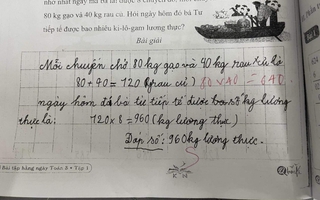 80 kg gạo và 40 kg rau củ. Hỏi ngày hôm đó bà Tư
tiếp tế được bao nhiêu ki-lô-gam lương thực?
Bài giải
Mỗi chuyến chở 80 kg gạo và 40 kg rau củ là
80 + 40 = 120 (rau củ)
ngày hôm đó bà tư tiếp tế được số kg lương
thực là: 120 x 8 = 960 (kg lương thực)
Đáp số: 960 kg lương thực.
Bài tập hằng ngày Toán
Tập 1